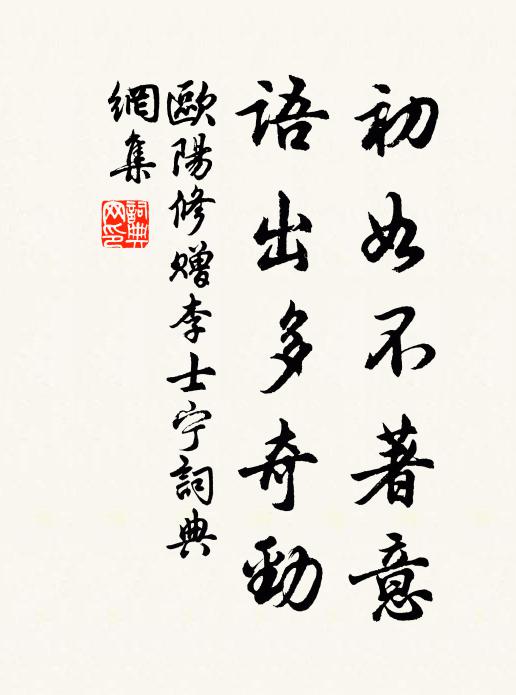 初如不著意
語出多奇勁
歐陽修赠李士宁詞典
網集
詞典網印